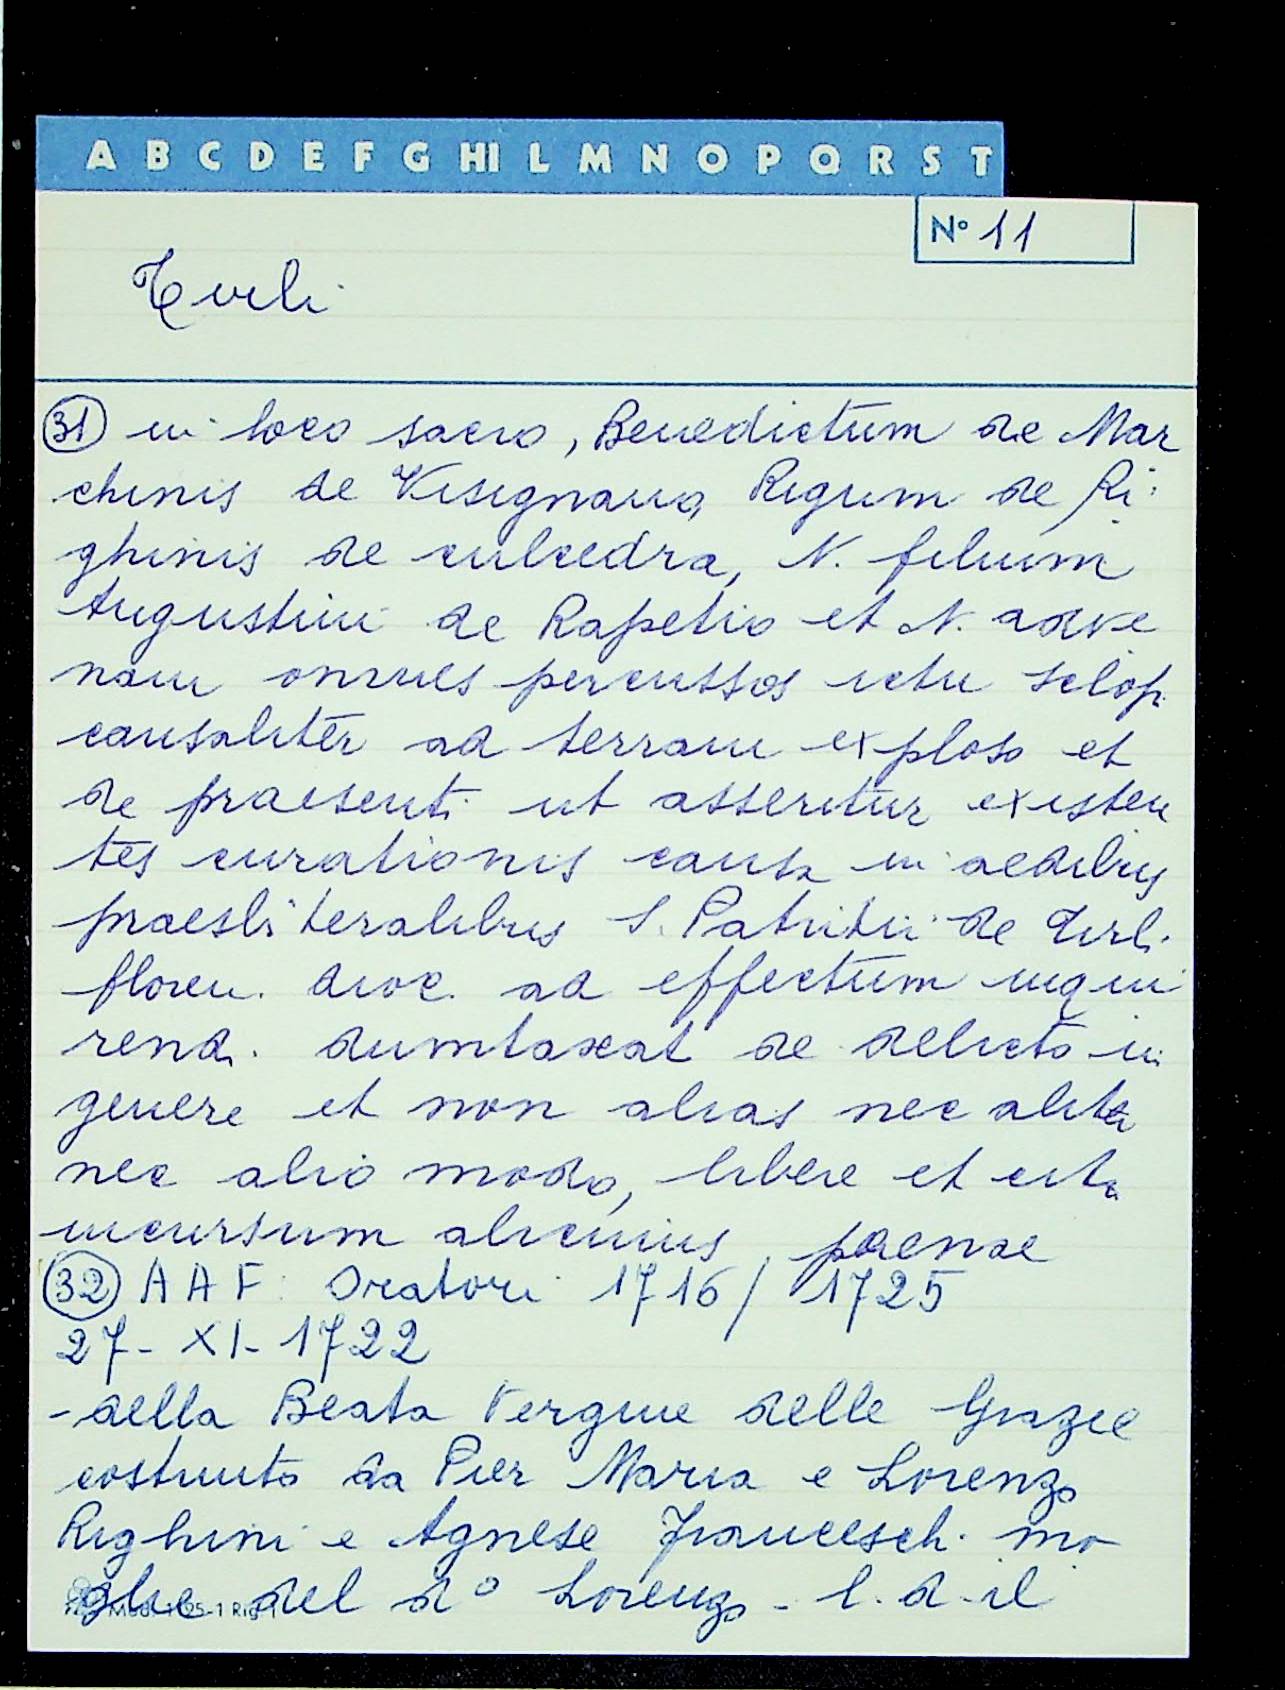 A B C D E F G HI L M N O P Q R S T
N° 11
Tirli
31 in loco sacro, Benedictum de Mar
chinis de Visignano, Rigum de Ri
ghinis de culcedra, N. filium
Augustini de Rapetio et N. adve
nam omnes percussos ictu sclop.
causaliter ad terram exploso et
de praesenti ut asseritur existen
tes curationis causa in aedibus
praesbiteralibus S. Patritii de Tirli
floren. dioc. ad effectum inqui
rend. dumtaxat de delicto in
genere et non alias nec aliter
nec alio modo, libere et cita
incursum alicuius poenae
32 A A F: Oratori 1716/1725
27- XI- 1722
- della Beata Vergine delle Grazie
costruito da Pier Maria e Lorenzo
Righini e Agnese Franceschi mo
glie del d° Lorenzo - l. d. il